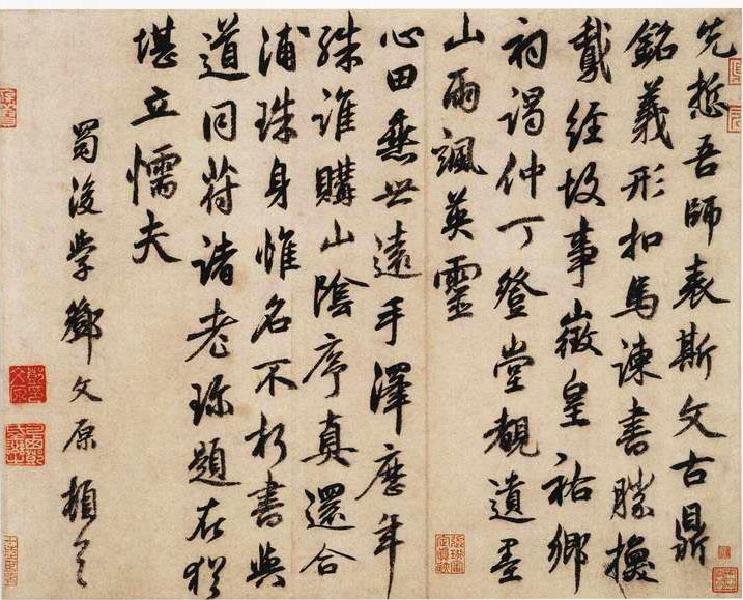 先悊吾師表斯文古鼎
銘義形扣馬諫書勝換
鵞經故事徵皇祐鄉
祠謁仲丁登堂覩遺墨
山雨颯英靈
心田無世遠手澤歷年
殊誰購山陰序真還合
浦珠身惟名不朽書與
道同符諸老珎題在猶
堪立懦夫
蜀後學鄧文原頓首